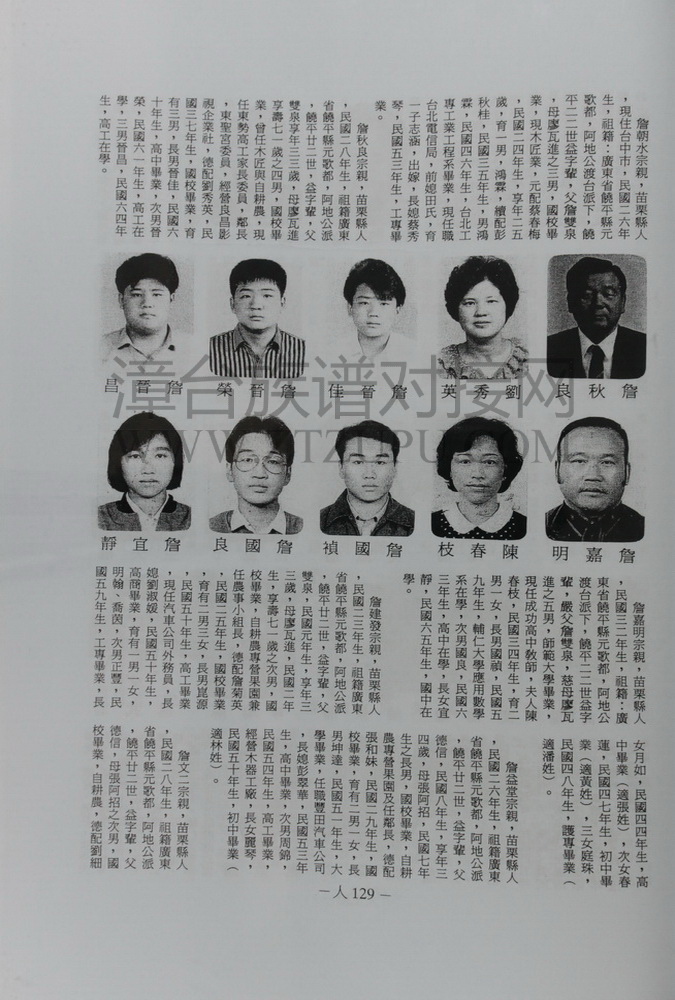 詹朝水宗親，苗栗縣人
，現住台中市，民國二六年
生，祖籍：廣東省饒平縣元
歌都，阿地公渡台派下，饒
平二二世益字輩，父詹雙泉
，母廖瓦進之三男，國校畢
業，現木匠業，元配蔡春梅
，民國二四年生，享年二五
歲，育一男，鴻霖，續配彭
秋桂，民國三五年生，男鴻
霖，民國四六年生，台北工
專工業工程系畢業，現任職
台北電信局，前媳田氏，育
一子志涵，出嫁，長媳蔡秀
琴，民國五三年生，工專畢
業。
詹秋良宗親，苗栗縣人
，民國二八年生，祖籍廣東
省饒平縣元歌都，阿地公派
，饒平廿二世，益字輩，父
雙泉享年三三歲，母廖瓦進
享壽七一歲之四男，國校畢
業，曾任木匠與自耕農，現
任東勢高工家長委員，鄰長
，東聖宮委員，經營良昌影
視企業社，德配劉秀英，民
國三七年生，國校畢業，育
有三男，長男晉佳，民國六
十年生，高中畢業，次男晉
榮，民國六一年生，高工在
學，三男晉昌，民國六四年
生，高工在學。
昌晉詹
榮晉詹
佳晉詹
英秀劉
良秋詹
漳台族谱对接网
WWW.ZTZUPU.COM
靜宜詹
良國詹
禎國詹
枝春陳
明嘉詹
詹嘉明宗親，苗栗縣人
，民國三二年生，祖籍：廣
東省饒平縣元歌都，阿地公
渡台派下，饒平二二世益字
輩，嚴父詹雙泉，慈母廖瓦
進之五男，師範大學畢業，
現任成功高中敎師，夫人陳
春枝，民國三四年生，育二
男一女，長男國禎，民國五
九年生，輔仁大學應用數學
系在學，次男國良，民國六
三年生，高中在學，長女宜
靜，民國六五年生，國中在
學。
詹建發宗親，苗栗縣人
，民國二三年生，祖籍廣東
省饒平縣元歌都，阿地公派
，饒平廿二世，益字輩，父
雙泉，民國元年生，享年三
三歲，母廖瓦進，民國二年
生，享壽七一歲之次男，國
校畢業，自耕農專營果園兼
任農事小組長，德配詹菊英
，民國二五年生，國校畢業
，育有二男三女，長男崑源
，民國五十年生，高工畢業
，現任汽車公司外務員，長
媳劉淑媛，民國五十年生，
高商畢業，育有一男一女，
明翰、喬茵，次男正豐，民
國五九年生，工專畢業，長
女月如，民國四四年生，高
中畢業（適張姓），次女春
蓮，民國四七年生，初中畢
業（適黃姓），三女庭珠，
民國四八年生，護專畢業（
適潘姓）。
詹益堂宗親，苗栗縣人
，民國二六年生，祖籍廣東
省饒平縣元歌都，阿地公派
，饒平廿二世，益字輩，父
德信，民國八年生，享年三
四歲，母張阿招，民國七年
生之長男，國校畢業，自耕
農專營果園及任鄰長，德配
張和妹，民國二九年生，國
校畢業，育有二男一女，長
男坤達，民國五一年生，大
學畢業，任職豐田汽車公司
，長媳彭翠華，民國五三年
生，高中畢業，次男周錦，
民國五四年生，高工畢業，
經營木器工廠，長女麗琴，
民國五十年生，初中畢業（
適林姓）。
詹文二宗親，苗栗縣人
，民國二八年生，祖籍廣東
省饒平縣元歌都，阿地公派
，饒平廿二世，益字輩，父
德信，母張阿招之次男，國
校畢業，自耕農，德配劉細
－人129－